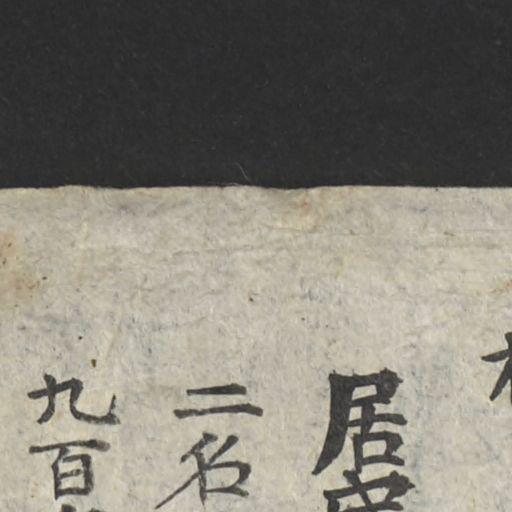 居
二名
九百